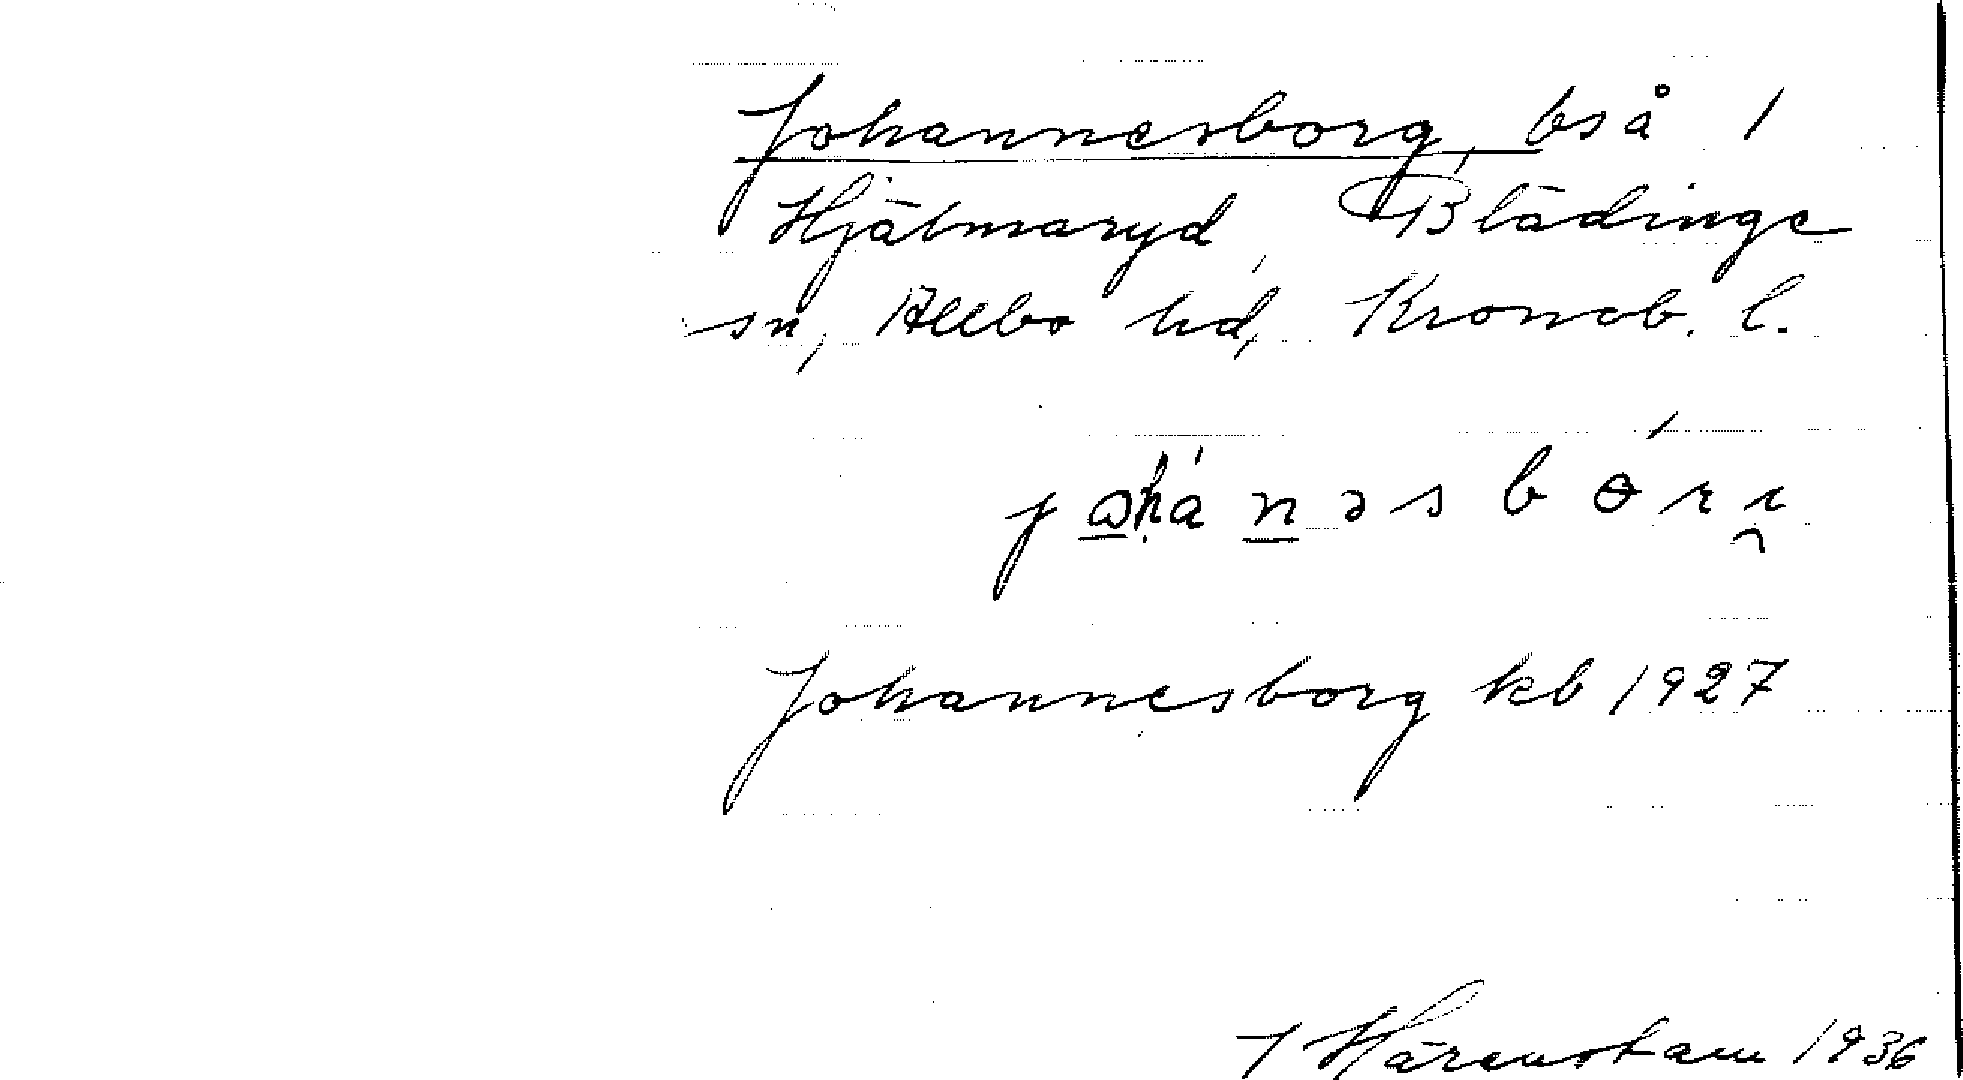 Johannesborg, bså 1
Hjälmaryd, Blädinge
sn, Allbo hd, Kronob. l.
Johannesborg kb 1927
Härenstam 1936